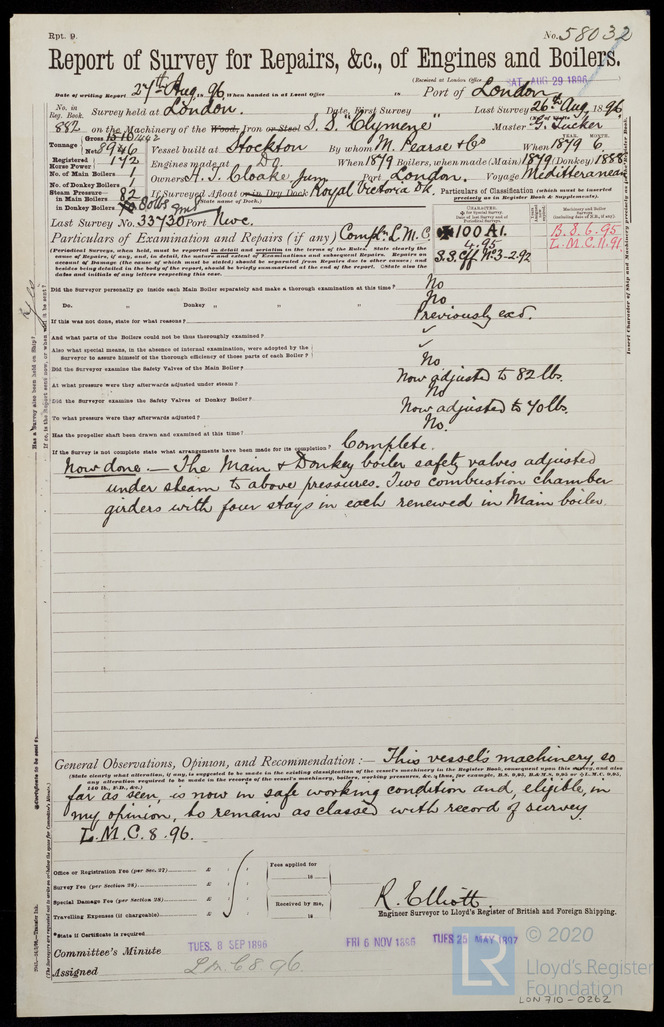 Rpt. 9.
No. 58032
Report of Survey for Repairs, &c., of Engines and Boilers.
(Received at London Office SAT. AUG 29 1896)
Date of writing Report 27th Aug 1896 When handed in at Local Office 18 Port of London
No. in Reg. Book. Survey held at London. Date, First Survey Last Survey 26th Aug 1896
882 on the Machinery of the Wood, Iron or Steel S. S. "Clymene" Master G. Tucker
Tonnage Gross 1442
Net 894 Vessel built at Stockton By whom M. Pearse & Co When 1879 6
Registered Horse Power 172 Engines made at Do. When 1879 Boilers, when made (Main) 1879 (Donkey) 1888
No. of Main Boilers 1 Owners A. J. Cloake Junr. Port London. Voyage Mediterranean
No. of Donkey Boilers 1
Steam Pressure in Main Boilers 82 If Surveyed Afloat or in Dry Dock Royal Victoria Dk.
(State name of Dock.)
in Donkey Boilers
Particulars of Classification (which must be inserted precisely as in Register Book & Supplements).
Last Survey No. 33730 Port Nwc.
Particulars of Examination and Repairs (if any) Compln. L. M. C.
(Periodical Surveys, when held, must be reported in detail and seriatim in the terms of the Rules. State clearly the cause of Repairs, if any, and, in detail, the nature and extent of Examinations and subsequent Repairs. Repairs on account of Damage (the cause of which must be stated) should be separated from Repairs due to other causes; and besides being detailed in the body of the report, should be briefly summarised at the end of the report. State also the dates and initials of any letters respecting this case.
100 A1.
4.95
S.S. Cff No 3-2.92
B.S. 6.95
L.M.C. 11.91
Did the Surveyor personally go inside each Main Boiler separately and make a thorough examination at this time? No
Do. " Donkey " " " No
If this was not done, state for what reasons? Previously exd.
And what parts of the Boilers could not be thus thoroughly examined?
Also what special means, in the absence of internal examination, were adopted by the Surveyor to assure himself of the thorough efficiency of those parts of each Boiler?
Did the Surveyor examine the Safety Valves of the Main Boiler? No
At what pressure were they afterwards adjusted under steam? Now adjusted to 82 lbs.
Did the Surveyor examine the Safety Valves of Donkey Boiler? No
To what pressure were they afterwards adjusted? Now adjusted to 70 lbs.
Has the propeller shaft been drawn and examined at this time? No.
If the Survey is not complete state what arrangements have been made for its completion? Complete.
Now done. — The Main & Donkey boiler safety valves adjusted
under steam to above pressures. Two combustion chamber
girders with four stays in each renewed in Main boiler.
General Observations, Opinion, and Recommendation :— This vessel's machinery, so
far as seen, is now in safe working condition and, eligible, in
my opinion, to remain as classed with record of survey
L. M. C. 8. 96.
Office or Registration Fee (per Sec. 27) £
Survey Fee (per Section 28) £
Special Damage Fee (per Section 28) £
Travelling Expenses (if chargeable) £
Fees applied for
18
Received by me,
18
R. Elliott.
Engineer Surveyor to Lloyd's Register of British and Foreign Shipping.
*State if Certificate is required
Committee's Minute TUES. 8 SEP 1896 FRI 6 NOV 1896 TUES 25 MAY 1897
Assigned L M C 8 96.
LR
© 2020
Lloyd's Register
Foundation
LON 710-0262